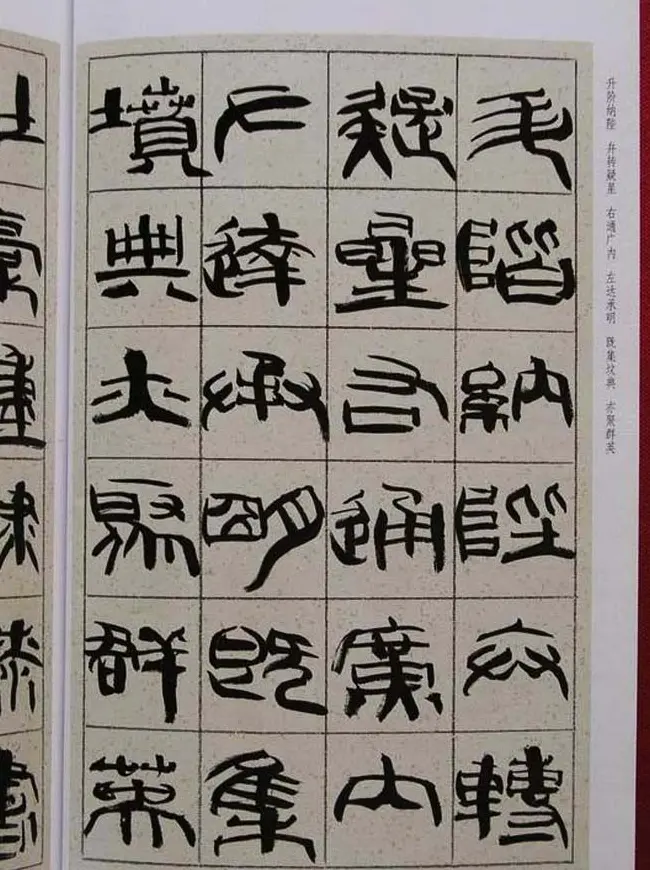 升阶纳陛 弁转疑星 右通广内 左达承明 既集坟典 亦聚群英
升階納陛弁轉
疑星右通廣内
左達承明既集
墳典亦聚群英